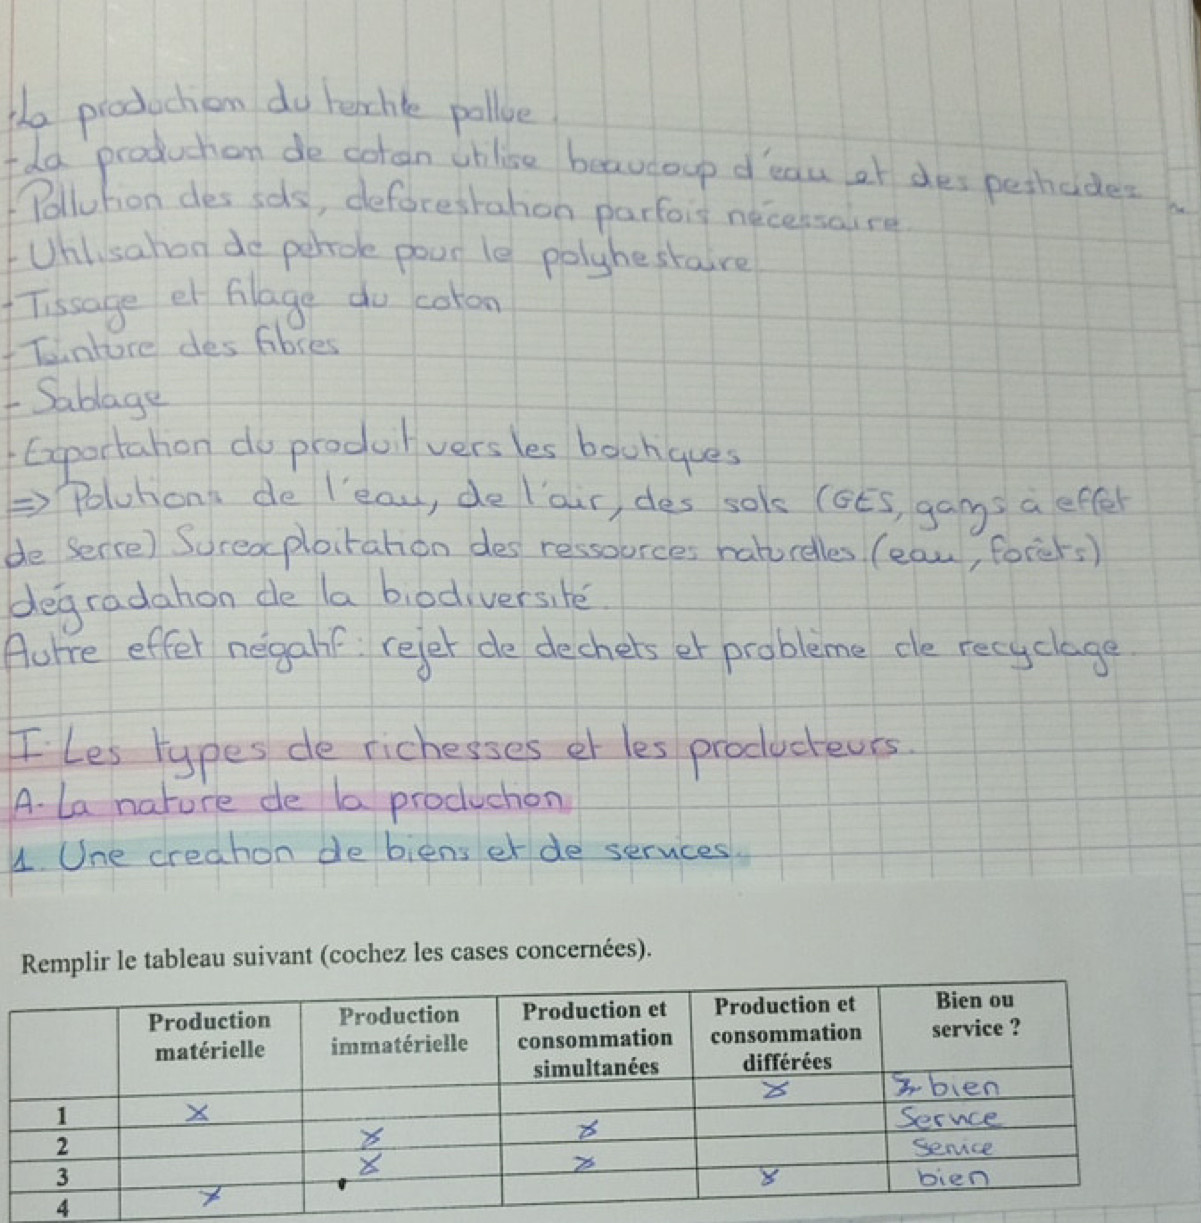 -La production du texhile pollue
-La production de coton utilise beaucoup d'eau et des pesticides
-Pollution des sols, deforestation parfois nécessaire
-Utilisation de petrole pour le polyhestaire
-Tissage et filage du coton
-Teinture des fibres
-Sablage
-Exportation du produit vers les boutiques
=> Polutions de l'eau, de l'air, des sols (GES, gangs à effet
de serre) Surexploitation des ressources naturelles (eau, forêts)
dégradation de la biodiversité.
Autre effet négatif : rejet de dechets et problème de recyclage.
I- Les types de richesses et les producteurs.
A- La nature de la production
1. Une creation de biens et de services.
Remplir le tableau suivant (cochez les cases concernées).
Production matérielle Production immatérielle Production et consommation simultanées Production et consommation différées Bien ou service ?
1 x x bien
2 x x Service
3 x x Service
4 x x bien